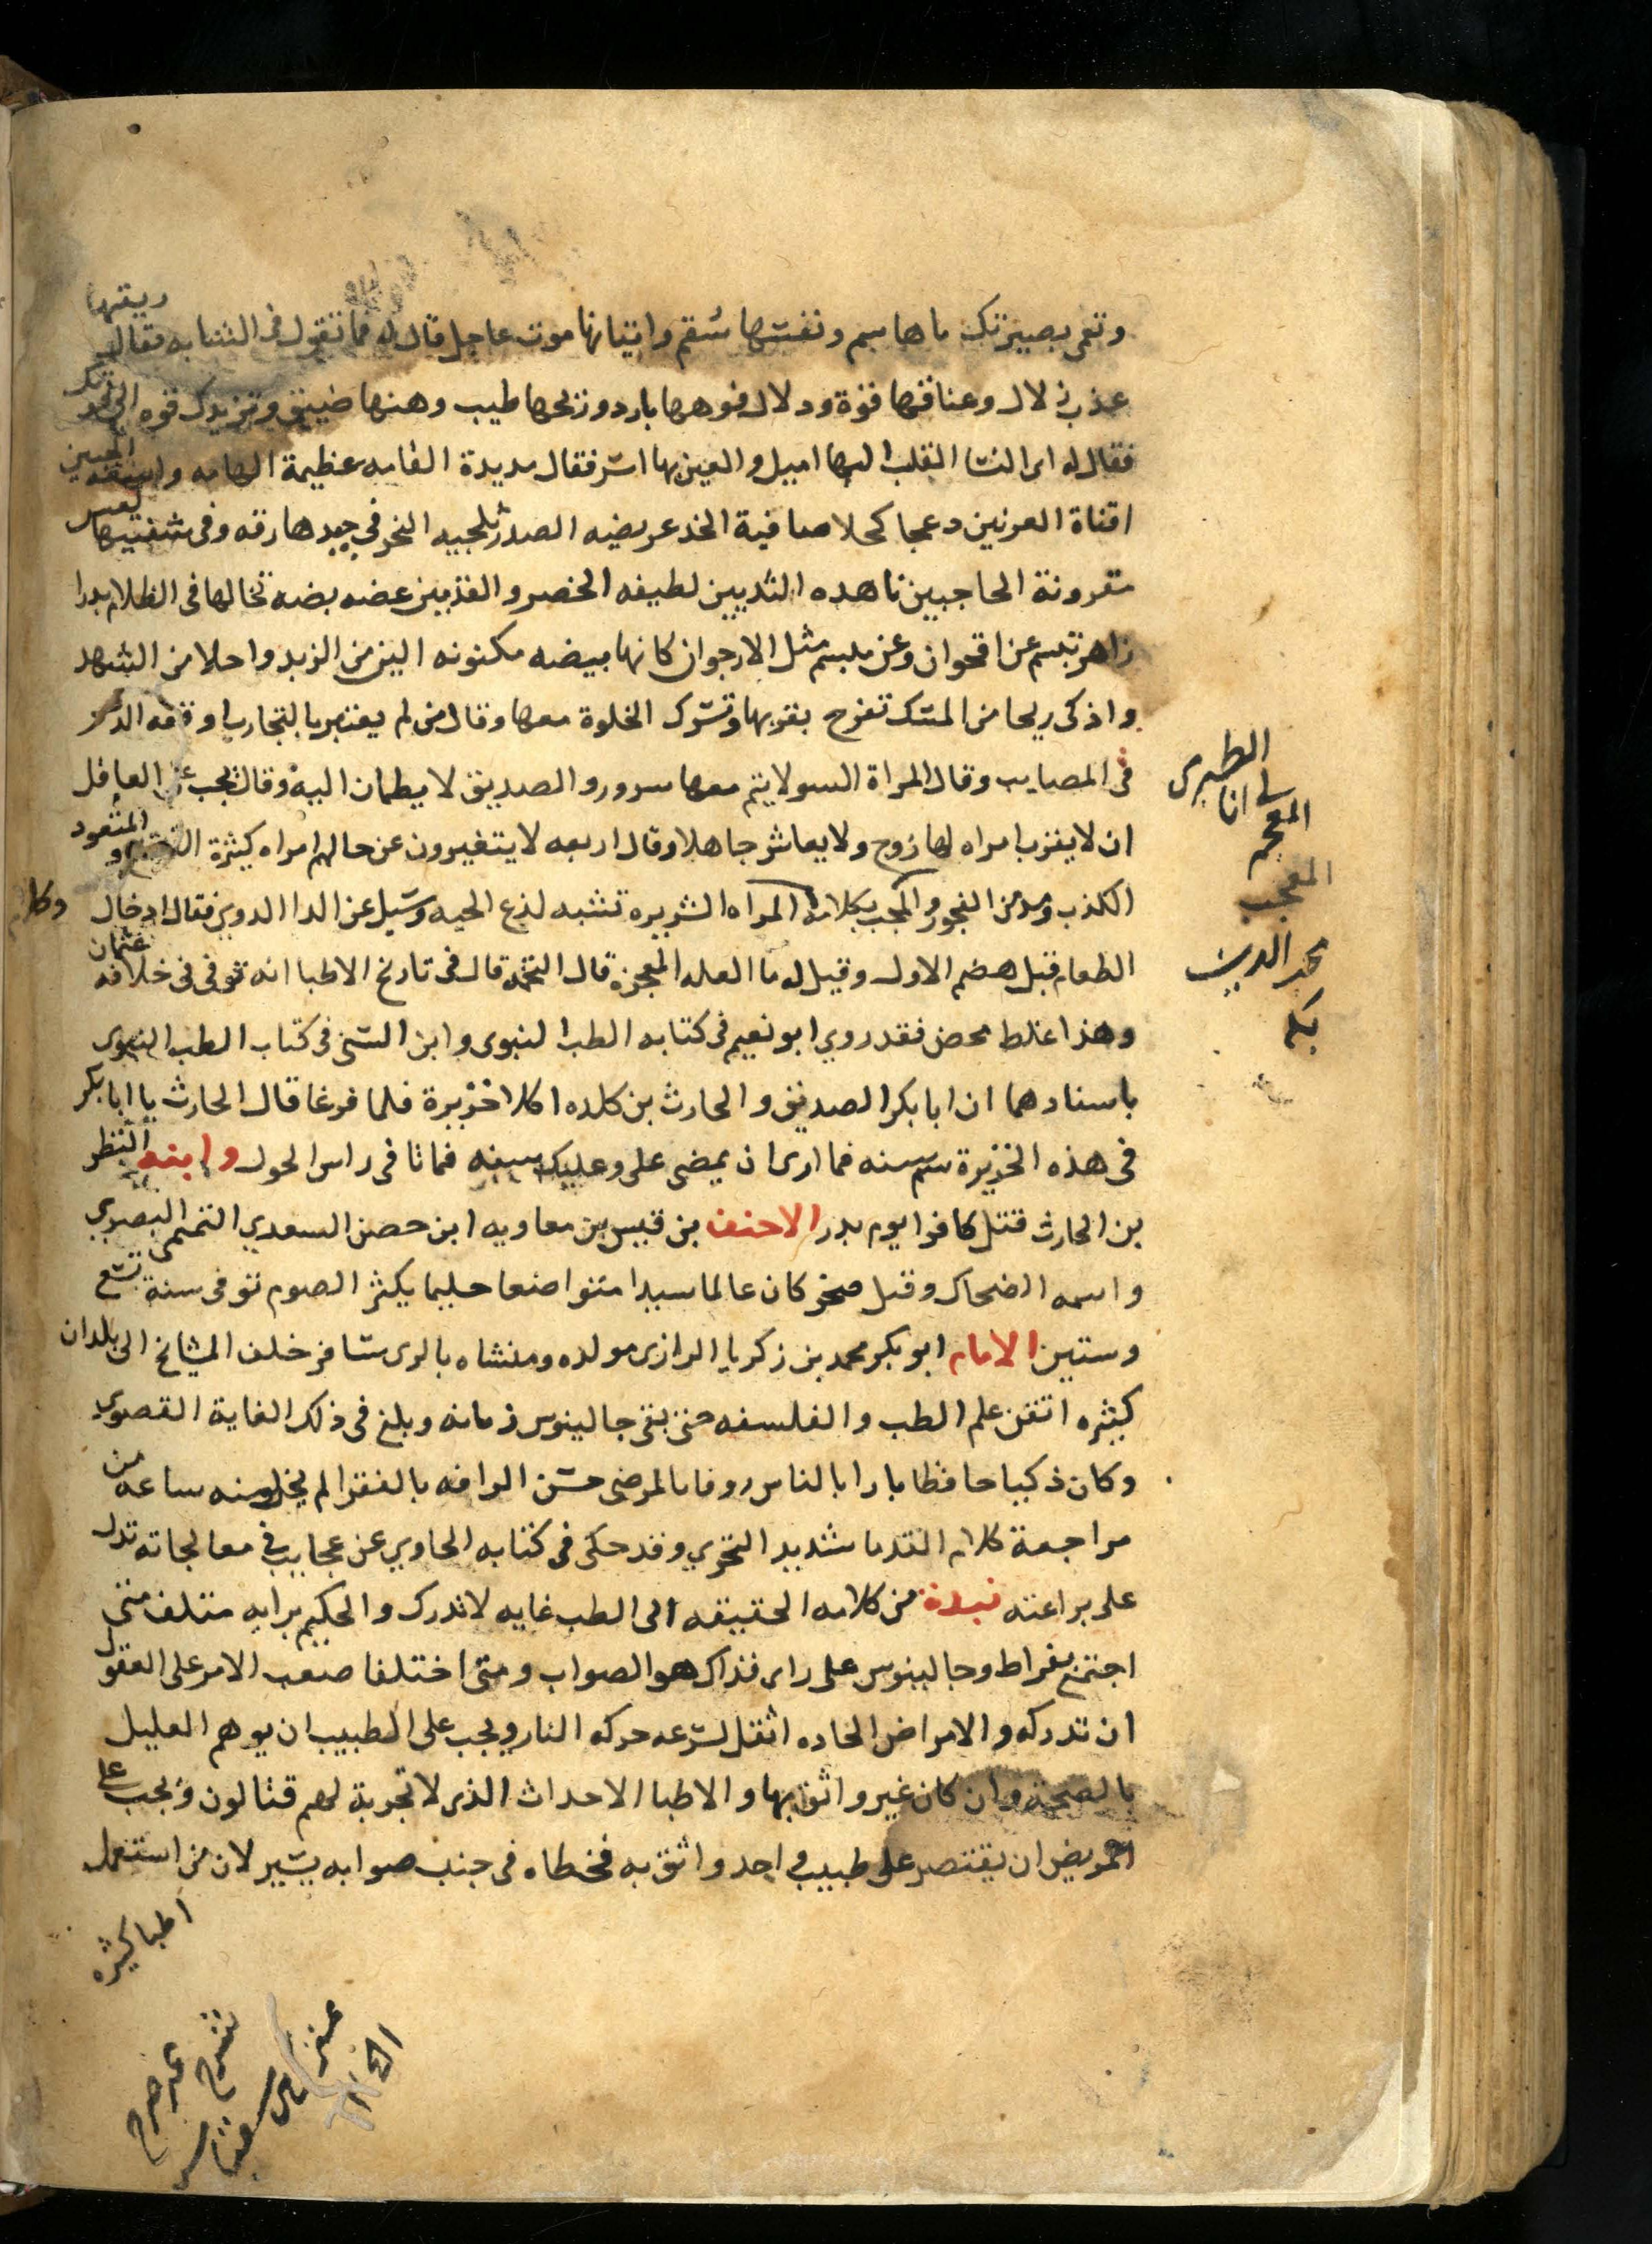 وتعمى بصيرتك ماها سم ونفسها سُقم واتيانها موت عاجل قال له فما تقول في الشابه فقال ريقها
عذب زلال وعناقها قوة ودلال فوهها بارد وريحها طيب وهنها ضيق وتزيدك قوه الى
فقال له اى النسا القلب اليها اميل والعين بها اسر فقال مديدة القامه عظيمة الهامه واسعه الجبين
اقناة العرنين دعجا كحلا صافية الخد عريضه الصدر ثلجيه النحر في جيدها رقه وفى شفتيها لعس
مقرونة الحاجبين ناهده الثديين لطيفه الخصر والقدمين غضه بضه تخالها فى الظلام بدرا
زاهر تبسم عن اقحوان وعن مبسم مثل الارجوان كانها بيضه مكنونه الين من الزبد واحلا من الشهد
واذكى ريحا من المسك تفرح بقربها وتسرك الخلوة معها وقال من لم يعتبر بالتجارب اوقعه الدهر
فى المصايب وقال المراة السو لا يتم معها سرور والصديق لا يطمان اليه وقال يجب على العاقل
ان لا يقرب امراه لها زوج ولا يعاشر جاهلا وقال اربعه لا يتغيرون عن حالهم امراه كثيرة والمتعود
الكذب ومدمن الفجور والمعجب بكلامه المراه الشريره تشبه لدغ الحيه وسيل عن الدا الدوى فقال ادخال
الطعام قبل هضم الاول وقيل له ما العله المعجزه قال التخمه قال فى تاريخ الاطبا انه توفى فى خلافه عثمان
وهذا غلط محض فقد روي ابو نعيم فى كتابه الطب النبوى وابن السنى فى كتاب الطب النبوى
باسنادهما ان ابا بكر الصديق والحارث بن كلده اكلا خزيرة فلما فرغا قال الحارث يا ابا بكر
فى هذه الخزيرة سم سنه فما ارى ان يمضى على وعليك سنه فماتا فى راس الحول وابنه النظر
بن الحارث قتل كافرا يوم بدر الاحنف بن قيس بن معاويه ابن حصن السعدي التميمى البصري
واسمه الضحاك وقيل صخر كان عالما سيدا متواضعا حليما يكثر الصوم توفى سنة تسع
وستين الامام ابو بكر محمد بن زكريا الرازى مولده ومنشاه بالرى سافر خلف المشايخ الى بلدان
كثيره اتقن علم الطب والفلسفه حتى بقى جالينوس زمانه وبلغ فى ذلك الغاية القصوي
وكان ذكيا حافظا بارا بالناس روفا بالمرضى حسن الرافه بالفقرا لم يخل منه ساعه من
مراجعة كلام القدما شديد التحري وقد حكى فى كتابه الحاوي عن عجايب فى معالجاته تدل
على براعته نبذة من كلامه الحقيقه الى الطب غايه لا تدرك والحكيم برايه متلف متى
اجتمع بقراط وجالينوس على راى فذاك هو الصواب ومتى اختلفا صعب الامر على العقول
ان تدركه والامراض الحاده اثقل لسرعه حركه النار ويجب على الطبيب ان يوهم العليل
بالصحة وان كان غير واثق بها والاطبا الاحداث الذى لا تجربة لهم قتالون ويجب على
المريض ان يقتصر على طبيب واحد واثق به فخطاه فى جنب صوابه يسير لان من استعمل
اطبا كثيره
الطبرى
المعجم
المعجب